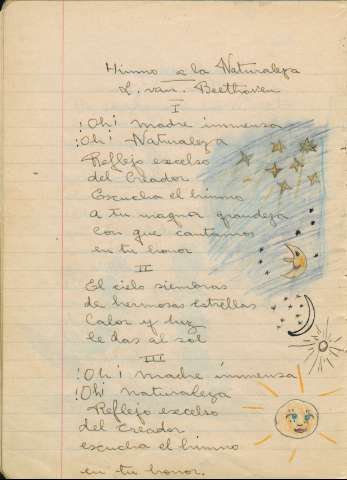 Himno a la Naturaleza
L. van. Beethoven
I
¡Oh! madre inmensa
¡Oh! Naturaleza
Reflejo excelso
del Creador
Escucha el himno
a tu magna grandeza
con que cantamos
en tu honor
II
El cielo siembras
de hermosas estrellas
Calor y luz
le das al sol
III
¡Oh! madre inmensa
¡Oh! naturaleza
Reflejo excelso
del creador
escucha el himno
en tu honor.